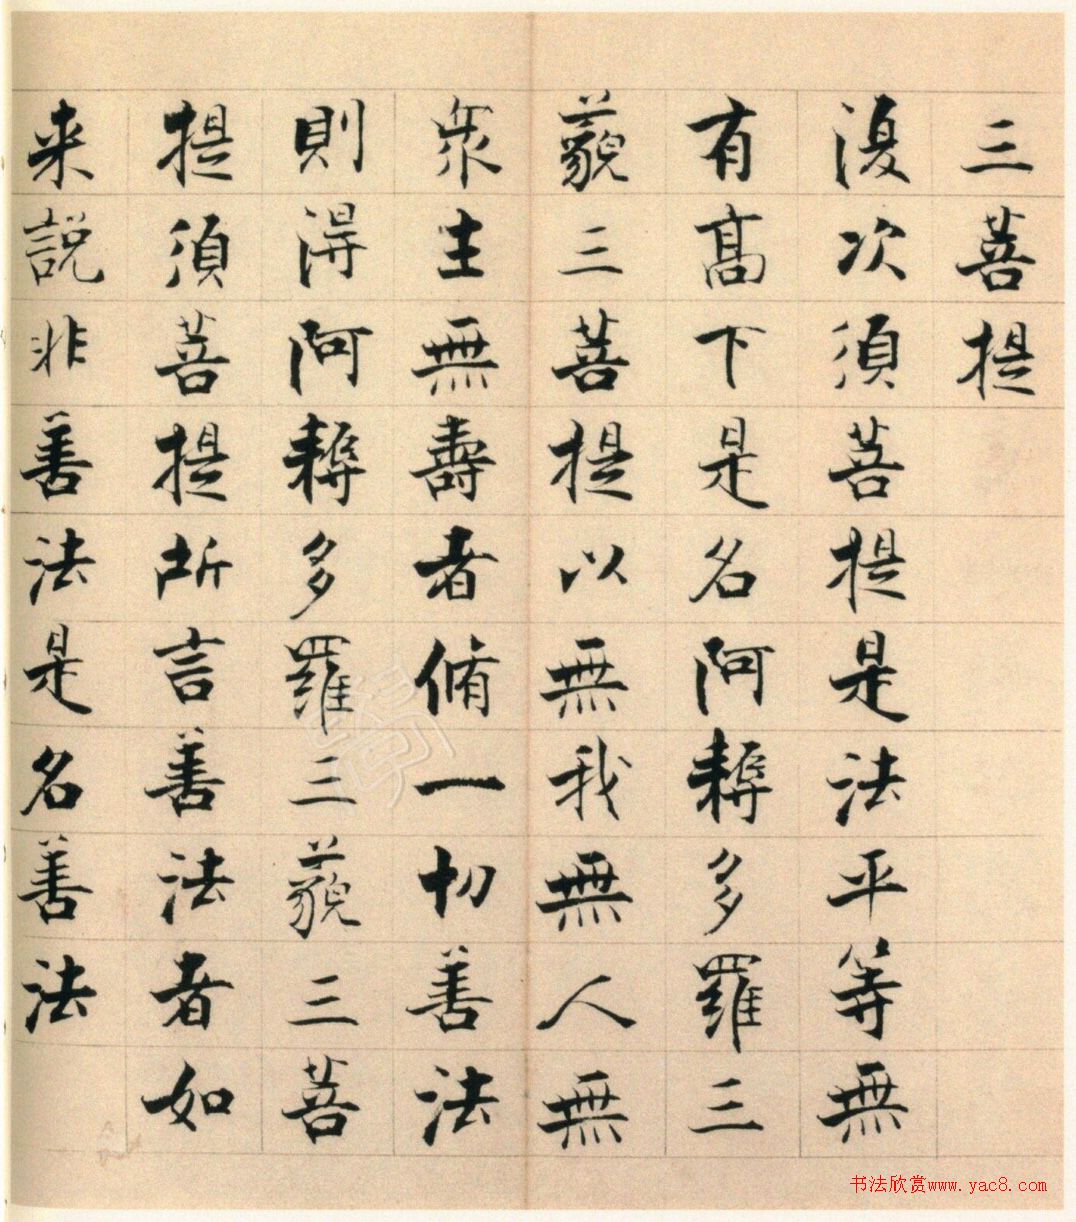 三菩提
復次須菩提是法平等無
有髙下是名阿耨多羅三
藐三菩提以無我無人無
衆生無壽者脩一切善法
則得阿耨多羅三藐三菩
提須菩提所言善法者如
来説非善法是名善法
书法欣赏www.yac8.com